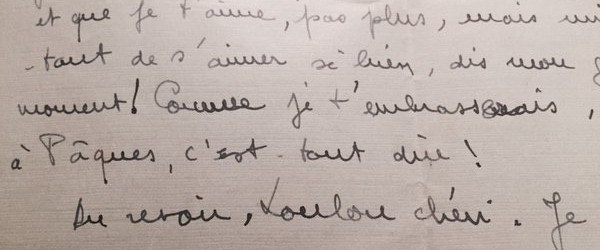 et que je t'aime, pas plus, mais
-tant de s'aimer si bien, dis mon
moment! Comme je t'embrasserais,
à Pâques, c'est tout dire!
Au revoir, Loulou chéri. Je